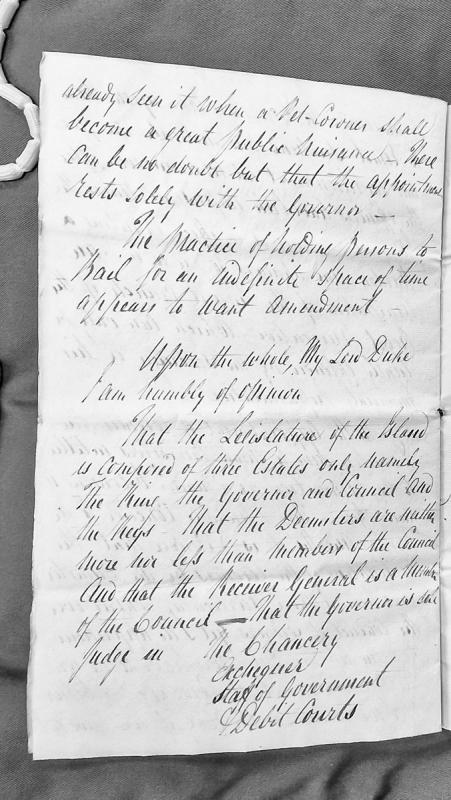 already seen it when a Pet-Coroner shall
become a great public Nuisance There
can be no doubt but that the appointment
rests solely with the Governor
The practice of holding persons to
Bail for an indefinite space of time
appears to want amendment
Upon the whole, My Lord Duke
I am humbly of opinion
That the Legislature of the Island
is composed of three Estates only namely
The King, the Governor and Council and
the Keys - That the Deemsters are neither
more nor less than members of the Council
And that the Receiver General is a Member
of the Council — That the Governor is sole
Judge in the Chancery
Exchequer
Staff of Government
& Debit Courts